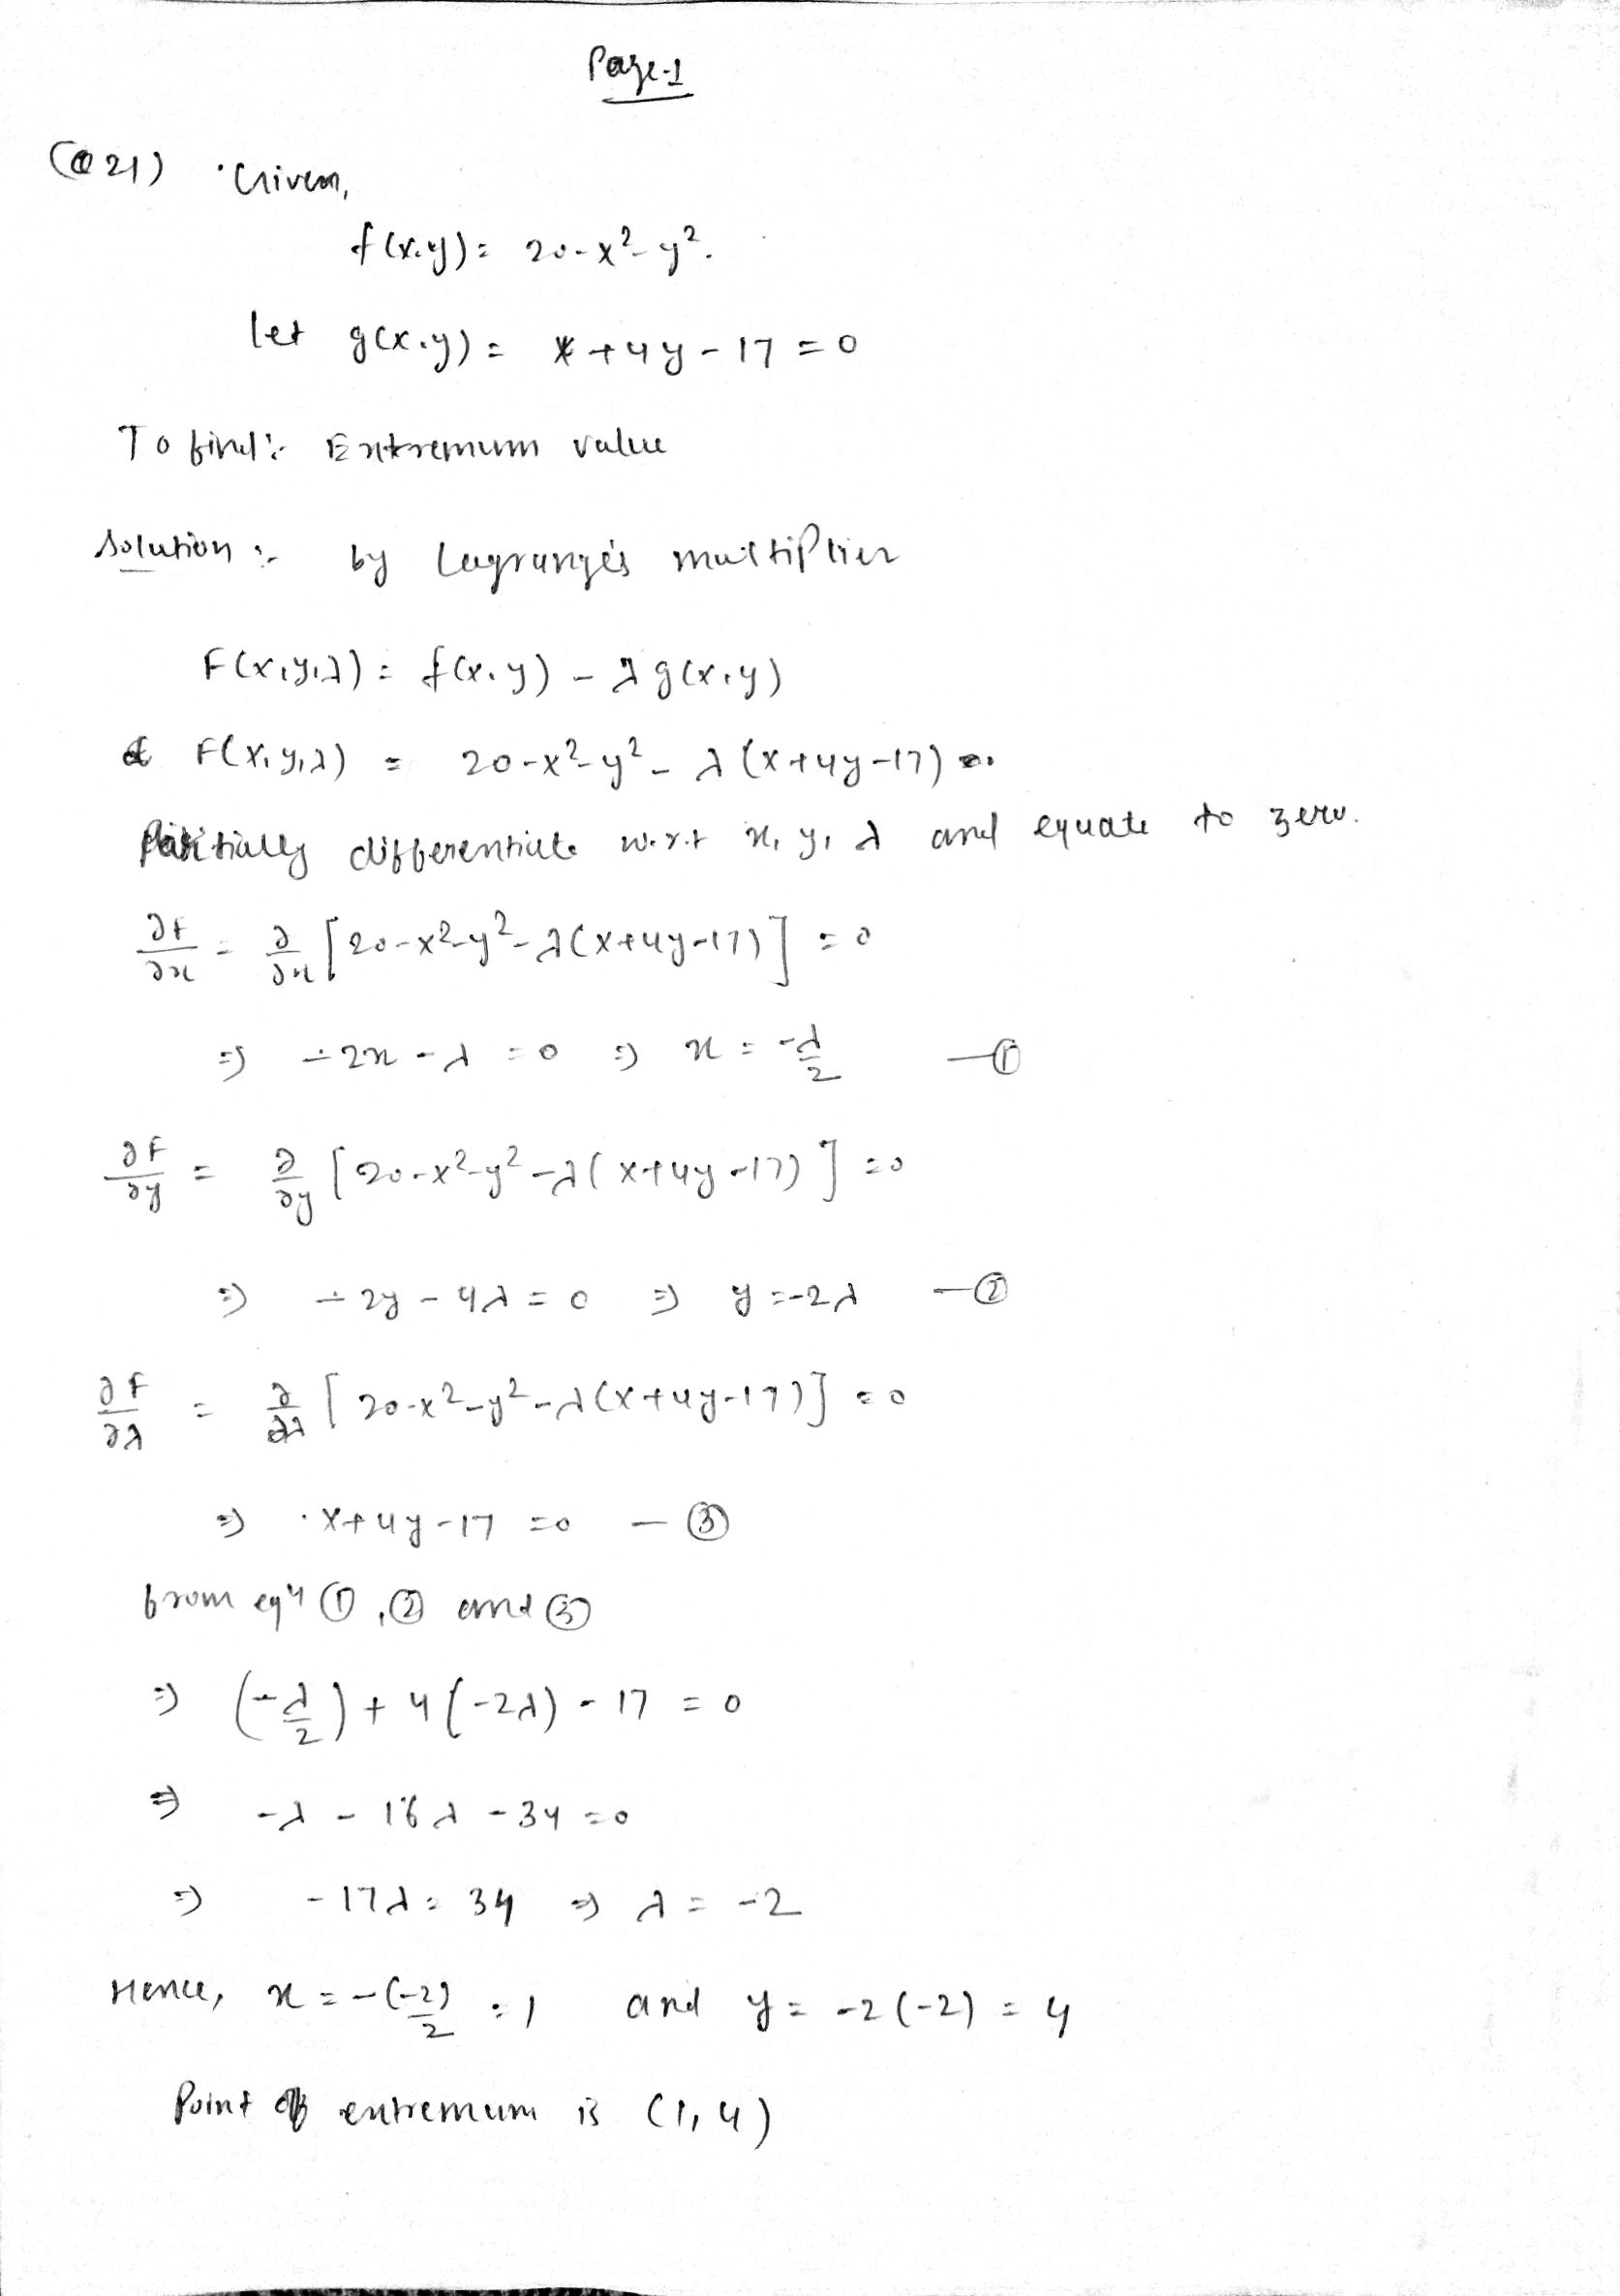 Page-1
(Q 21) Given,
f(x,y) = 20-x²-y².
let g(x,y) = x+4y-17=0
To find:- Extremum value
Solution:- by Lagrange's multiplier
F(x,y,λ) = f(x,y) - λg(x,y)
F(x,y,λ) = 20-x²-y²-λ(x+4y-17)
Partially differentiate w.r.t x, y, λ and equate to zero.
∂F/∂x = ∂/∂x [20-x²-y²-λ(x+4y-17)] = 0
⇒ -2x-λ=0 ⇒ x = -λ/2 —①
∂F/∂y = ∂/∂y [20-x²-y²-λ(x+4y-17)] = 0
⇒ -2y-4λ=0 ⇒ y=-2λ —②
∂F/∂λ = ∂/∂λ [20-x²-y²-λ(x+4y-17)] = 0
⇒ x+4y-17=0 —③
from eqⁿ ①,② and ③
⇒ (-λ/2)+4(-2λ)-17=0
⇒ -λ-16λ-34=0
⇒ -17λ=34 ⇒ λ=-2
Hence, x=-(-2)/2=1 and y=-2(-2)=4
Point of extremum is (1,4)